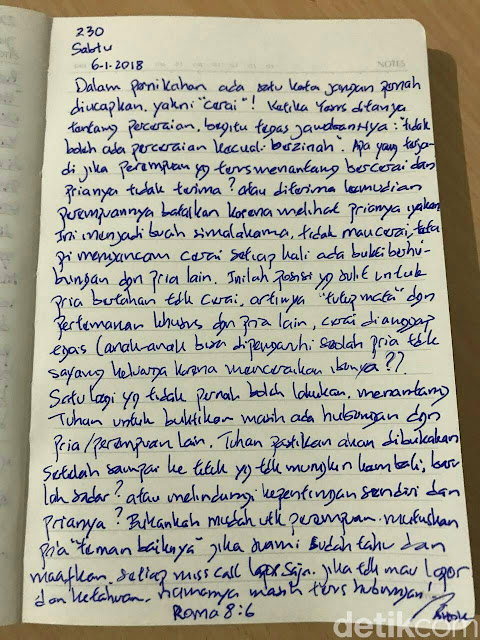 230
Sabtu
6-1-2018
NOTES
Dalam pernikahan ada satu kata jangan pernah
diucapkan, yakni "cerai"! Ketika Yesus ditanya
tentang perceraian, begitu tegas jawabanNya: "tidak
boleh ada perceraian kecuali berzinah". Apa yang terja-
di jika perempuan yg terus menantang bercerai dan
prianya tidak terima? atau diterima kemudian
perempuannya batalkan karena melihat prianya yakin
Ini menjadi buah simalakama, tidak mau cerai, teta
pi mengancam cerai setiap kali ada bukti berhu-
bungan dgn pria lain. Inilah posisi yg sulit untuk
pria bertahan tdk cerai, artinya "tutup mata" dgn
pertemanan khusus dgn pria lain, cerai dianggap
egois (anak-anak bisa dipengaruhi seolah pria tdk
sayang keluarga karena menceraikan ibunya??
Satu lagi yg tidak pernah boleh lakukan, menantang
Tuhan untuk buktikan masih ada hubungan dgn
pria/perempuan lain. Tuhan pastikan akan dibukakan
Setelah sampai ke titik yg tdk mungkin kembali, baru
lah sadar? atau melindungi kepentingan sendiri dan
prianya? Bukankah mudah utk perempuan mutuskan
pria "teman baiknya" jika suami sudah tahu dan
maafkan. setiap miss call lapor saja. jika tdk mau lapor
dan ketahuan, namanya masih terus hubungan!
Roma 8:6
detikcom